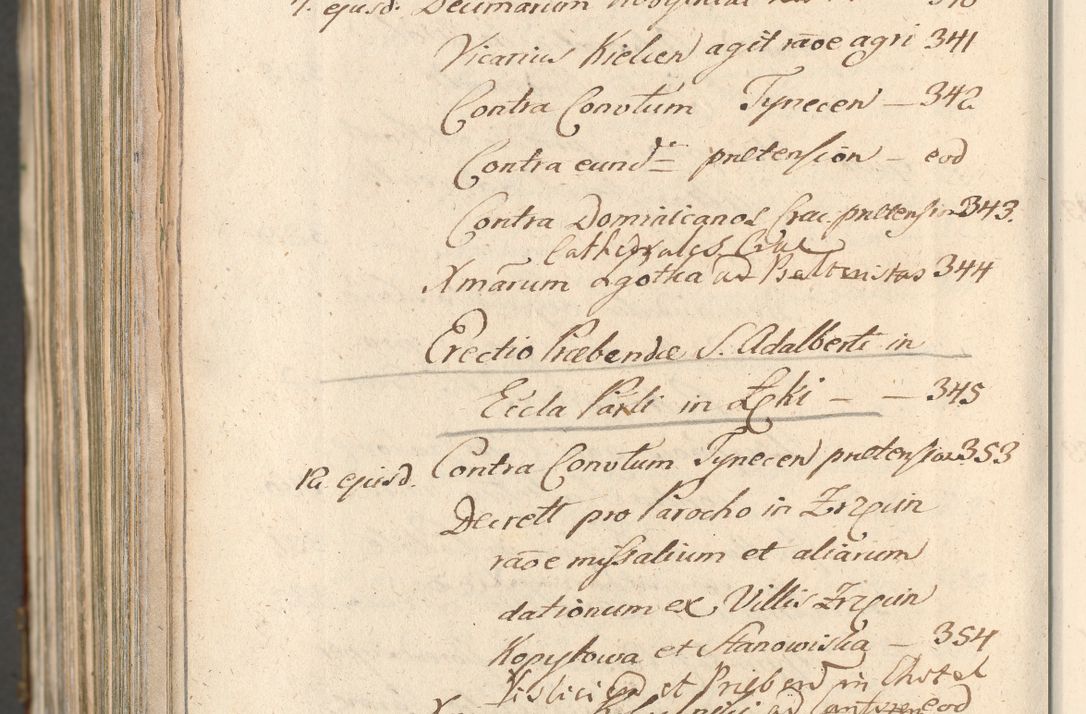 7. ejusd. Decimarum
Vicarius Kielcen agit rãoe agri 341
Contra Convtum Tynecen — 342
Contra eund. prætension — eod
Contra Dominicanos Crac. prætension 343.
Cathedrales Crac
Xmarum ad 344
Erectio Præbendæ S. Adalberti in
Eccla Parli in Łki — — 345
12. ejusd. Contra Convtum Tynecen prætension 353
Decrett pro Parocho in Zrzęcin
rãoe missalium et aliarum
dationum ex Villis Zrzęcin
Kopytowa et Stanowiska — 354
et in
ad eod